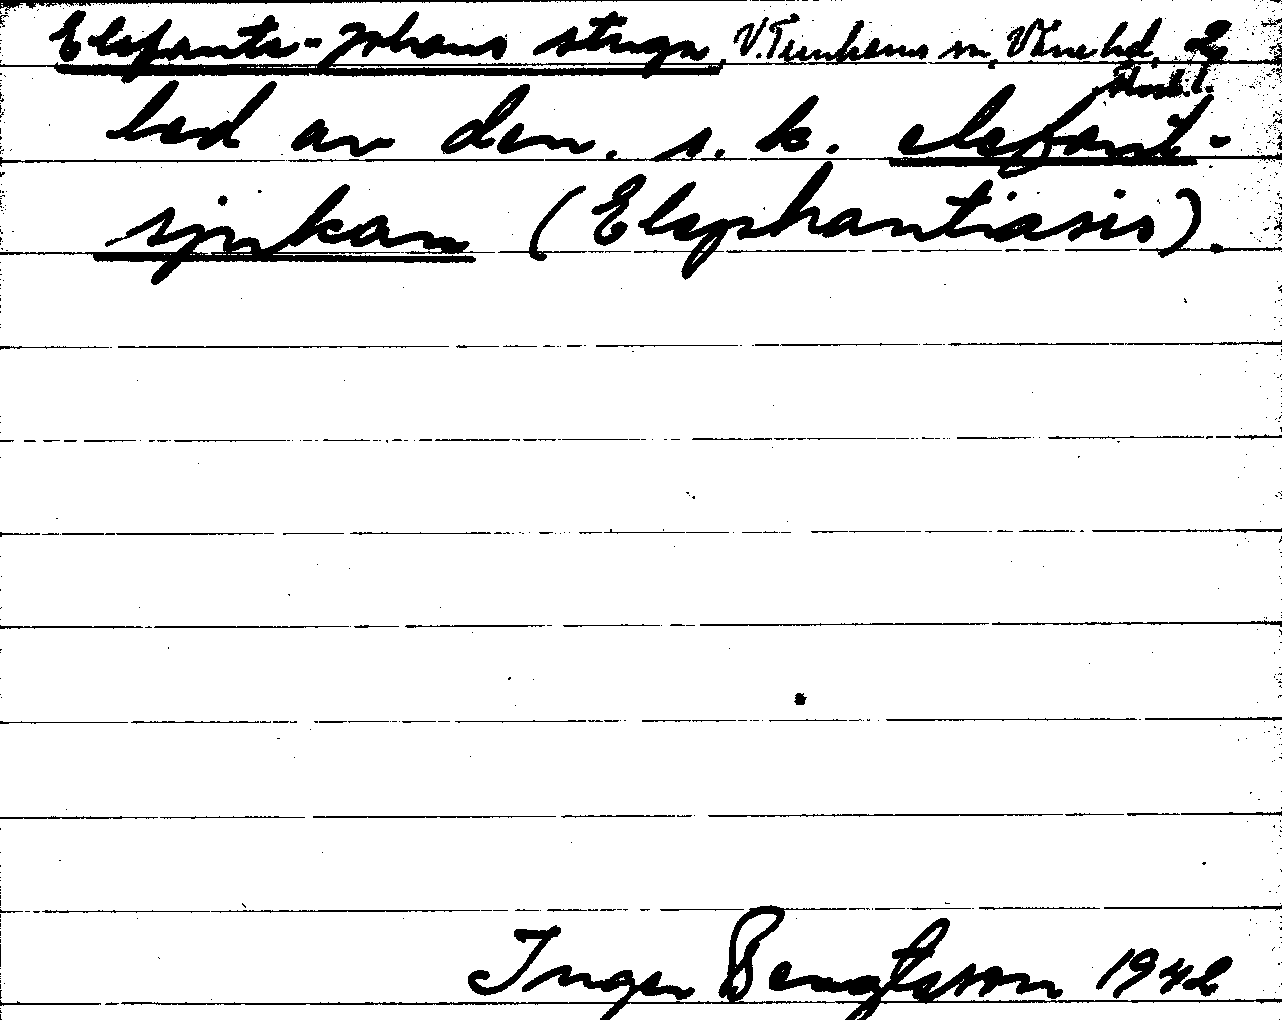 Elefants-Johans stuga, V. Tunhems sn, Väne hd, 2.
Älvsb. l.
led av den s. k. elefant-
sjukan (Elephantiasis).
Inger Bengtsson 1942